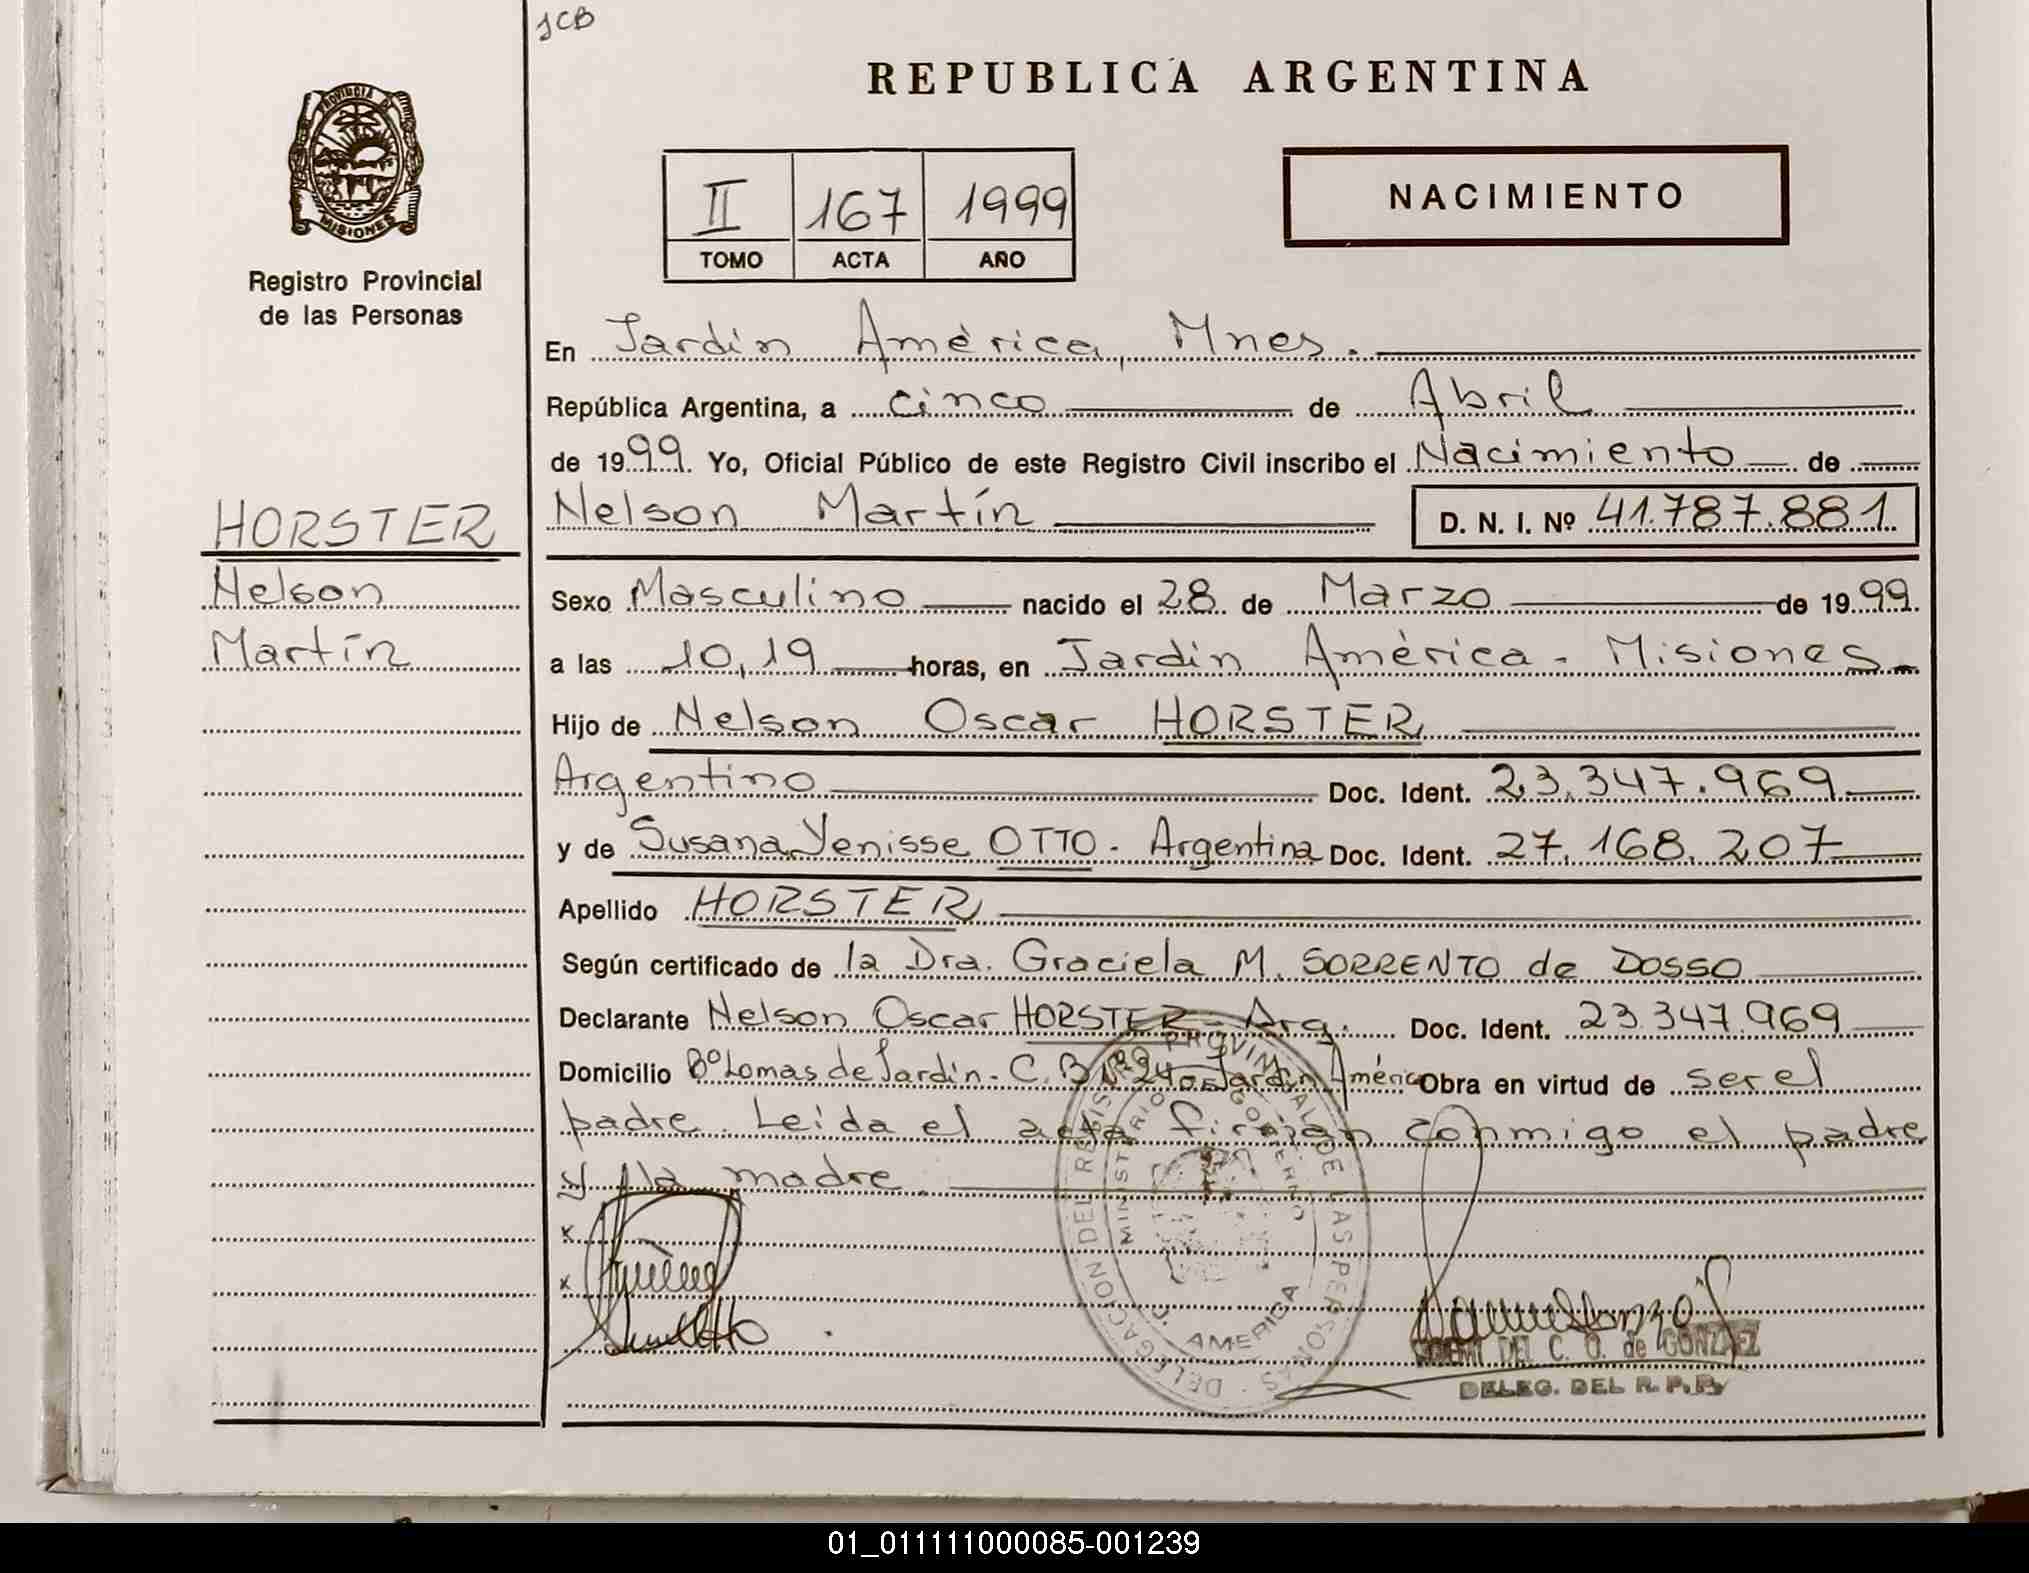 JCB
REPUBLICA ARGENTINA
PROVINCIA D
MISIONES
Registro Provincial
de las Personas
II 167 1999
TOMO ACTA AÑO
NACIMIENTO
En Jardín América, Mnes.
República Argentina, a cinco de Abril
de 1999. Yo, Oficial Público de este Registro Civil inscribo el Nacimiento de
HORSTER
Nelson
Martín
Nelson Martín D. N. I. Nº 41.787.881
Sexo Masculino nacido el 28 de Marzo de 1999.
a las 10,19 horas, en Jardín América - Misiones
Hijo de Nelson Oscar HORSTER
Argentino Doc. Ident. 23.347.969
y de Susana Yenisse OTTO - Argentina Doc. Ident. 27.168.207
Apellido HORSTER
Según certificado de la Dra. Graciela M. SORRENTO de DOSSO
Declarante Nelson Oscar HORSTER - Arg. Doc. Ident. 23.347.969
Domicilio Bº Lomas de Jardín - C. B Nº 240 - Jardín América Obra en virtud de ser el
padre. Leída el acta firman conmigo el padre
y la madre.
x
x
DELEGACION DEL REGISTRO PROVINCIAL DE LAS PERSONAS
MINISTERIO GOBIERNO
J. AMERICA
DEL C. O. de GONZALEZ
DELEG. DEL R. P. P.
01_011111000085-001239